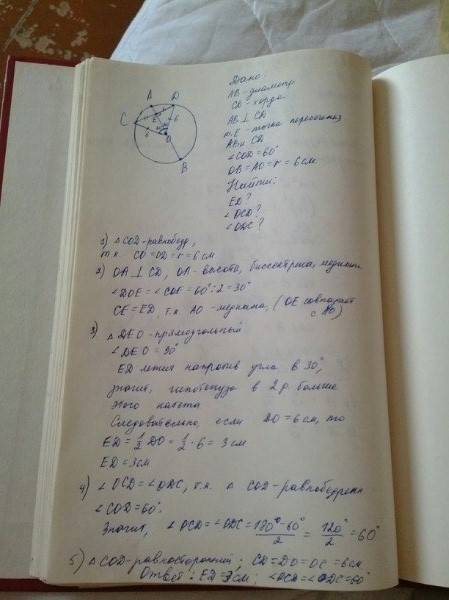 A D
C E 6
6 O
B
Дано:
АВ - диаметр
CD - хорда
АВ ⊥ CD
т. Е - точка пересечения
АВ и CD
∠COD = 60°
OB = AO = r = 6 см
Найти:
ED?
∠OCD?
∠ODC?
1) △COD - равнобедр,
т.к. CO = OD = r = 6 см
2) OA ⊥ CD, OA - высота, биссектриса, медиана
∠DOE = ∠COE = 60° : 2 = 30°
CE = ED, т.к. AO - медиана, (OE совпадает с AO)
3) △DEO - прямоугольный
∠DEO = 90°
ED лежит напротив угла в 30°,
значит, гипотенуза в 2 р. больше
этого катета
Следовательно, если DO = 6 см, то
ED = 1/2 DO = 1/2 · 6 = 3 см
ED = 3 см
4) ∠OCD = ∠ODC, т.к. △ COD - равнобедрен
∠COD = 60°.
Значит, ∠OCD = ∠ODC = 180° - 60° / 2 = 120° / 2 = 60°
5) △COD - равносторонний; CD = DO = OC = 6 см
Ответ: ED = 3 см; ∠OCD = ∠ODC = 60°